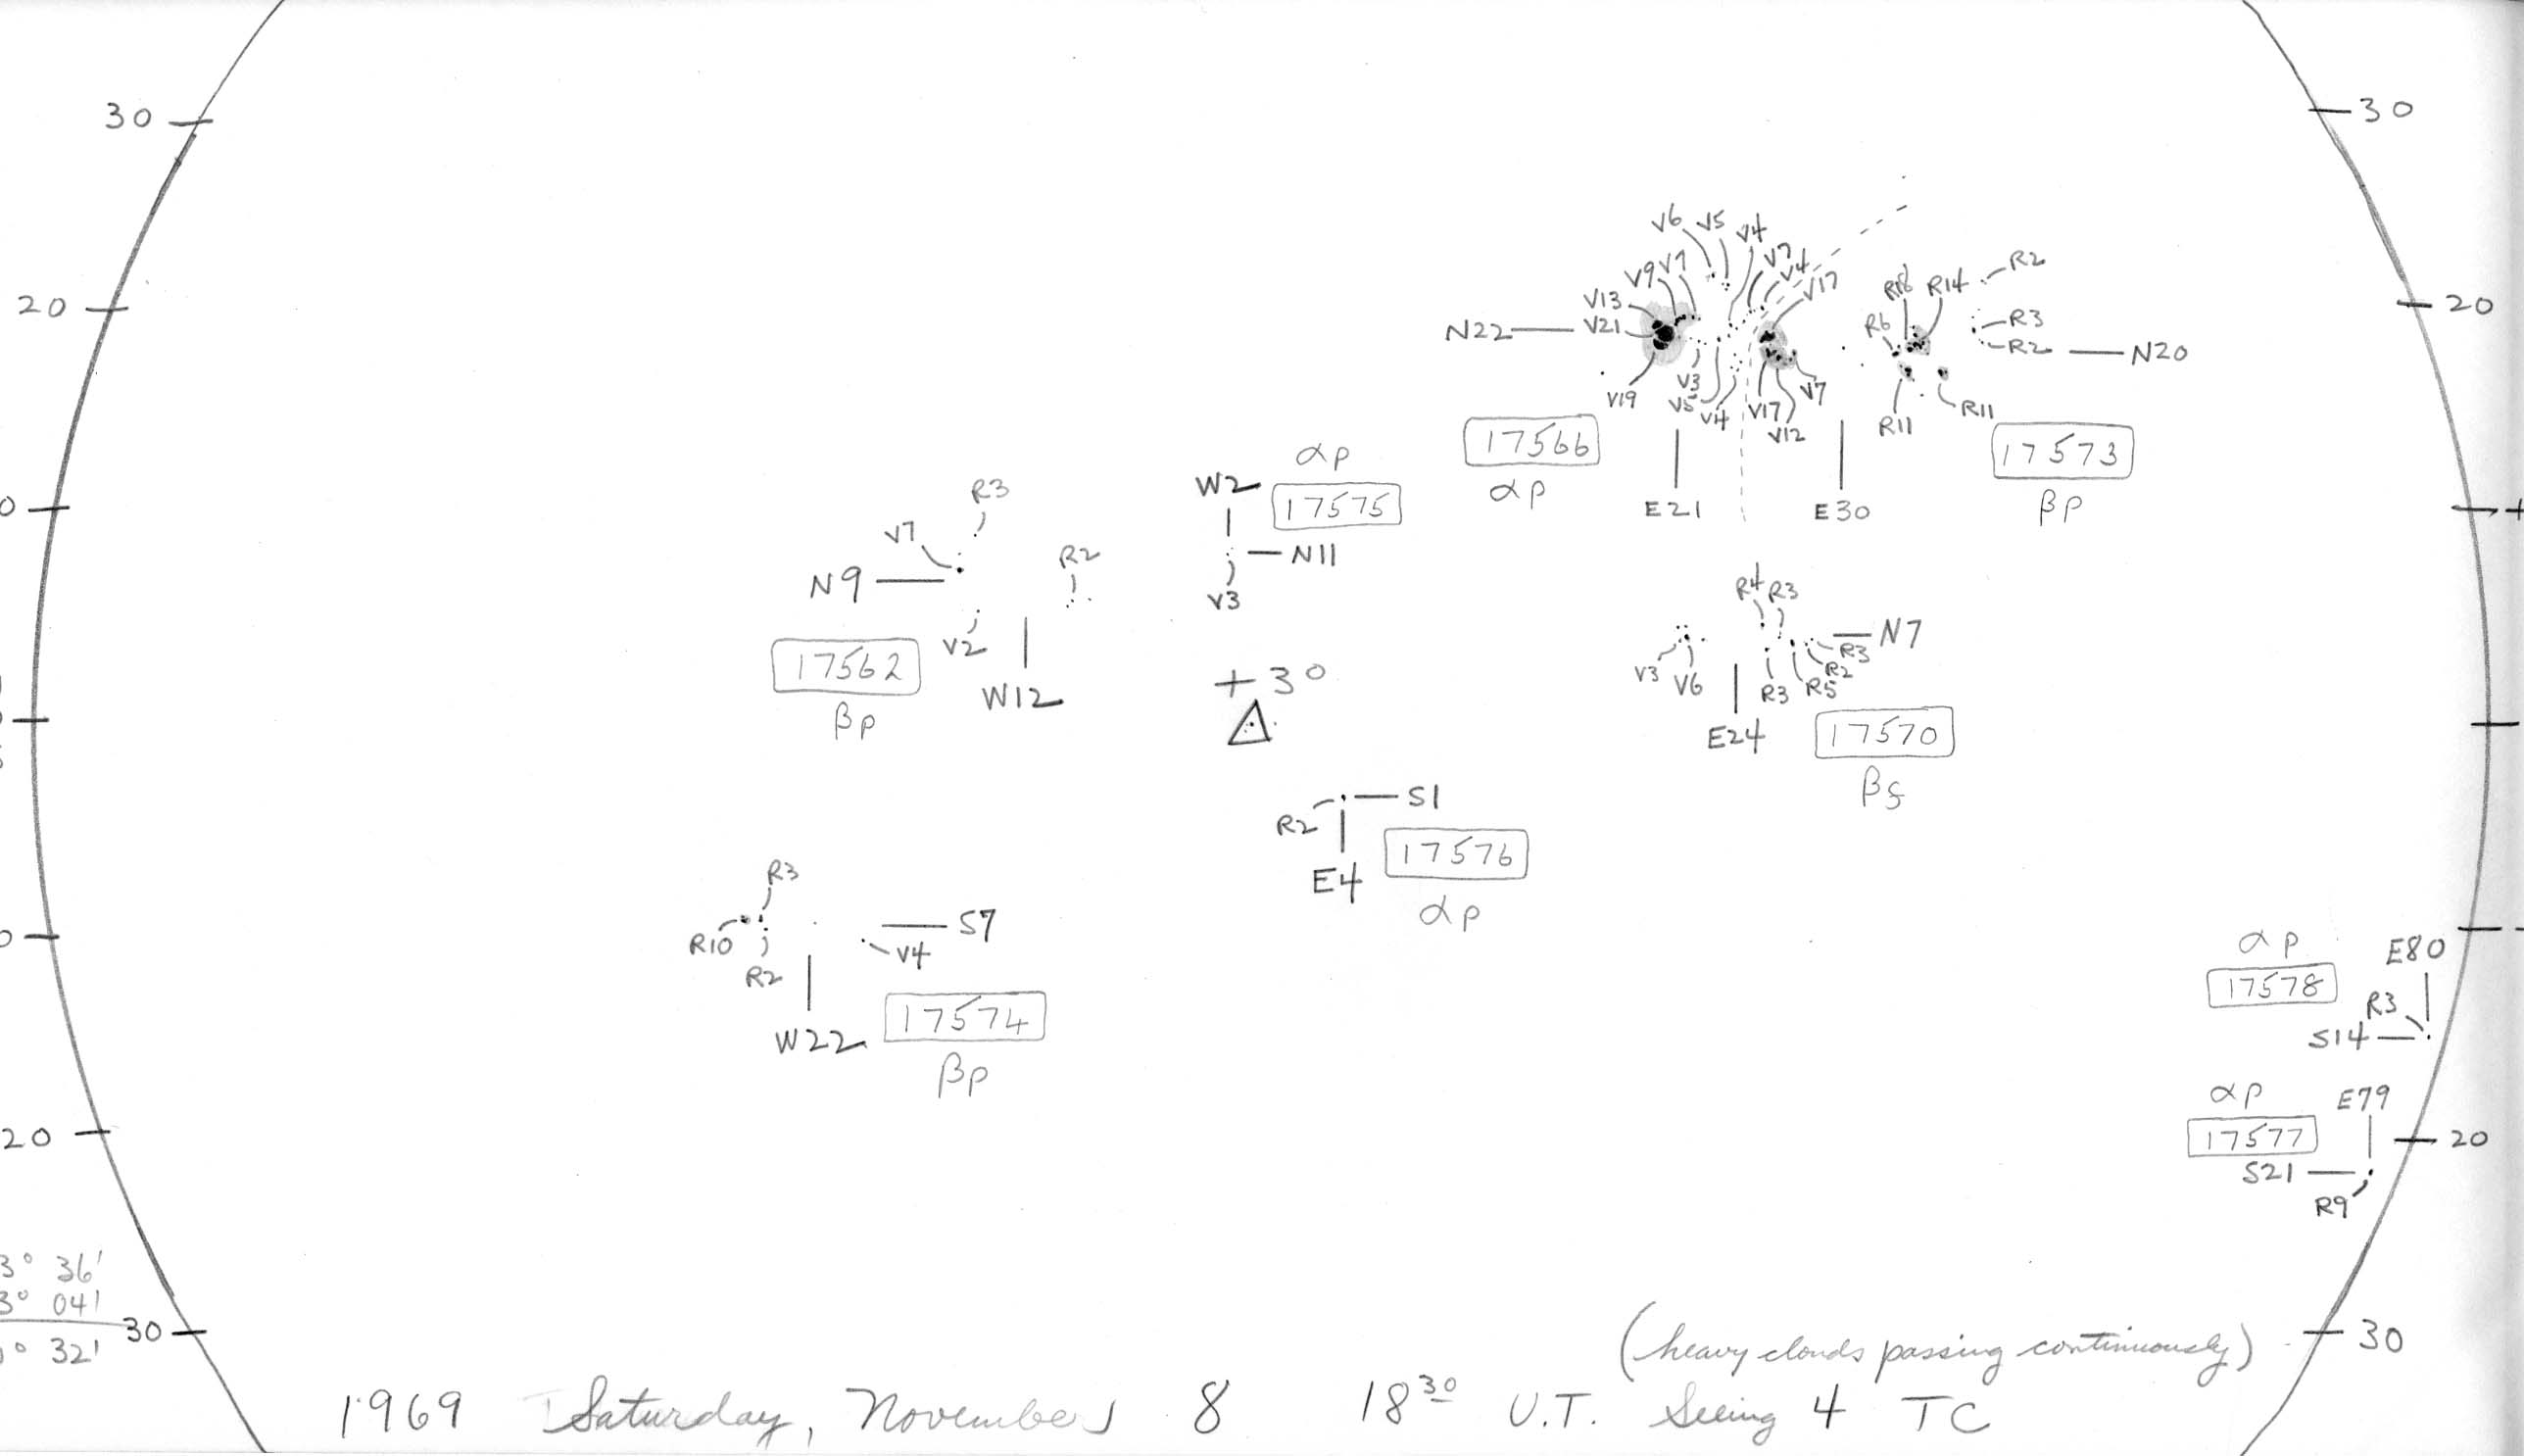 30
30
20
20
V6 V5 V4
V7 V4 V17
V9 V7
V13
V21
N22
V19
V3
V5
V4
V17
V12
V7
R18 R14
R2
R6
R3
R2
N20
R11
R11
17566
αp
E21
E30
17573
βp
R3
V7
N9
R2
V2
17562
βp
W12
αp
W2
17575
N11
V3
+3°
R4 R3
N7
R3
R2
R5
R3
V3 V6
E24
17570
βf
R2
S1
E4
17576
αp
R3
R10
R2
S7
V4
W22
17574
βp
αp
E80
17578
R3
S14
αp
E79
17577
S21
R9
20
20
3° 36'
3° 04'
° 32'
30
30
(heavy clouds passing continuously)
1969 Saturday, November 8 18 30 U.T. Seeing 4 TC